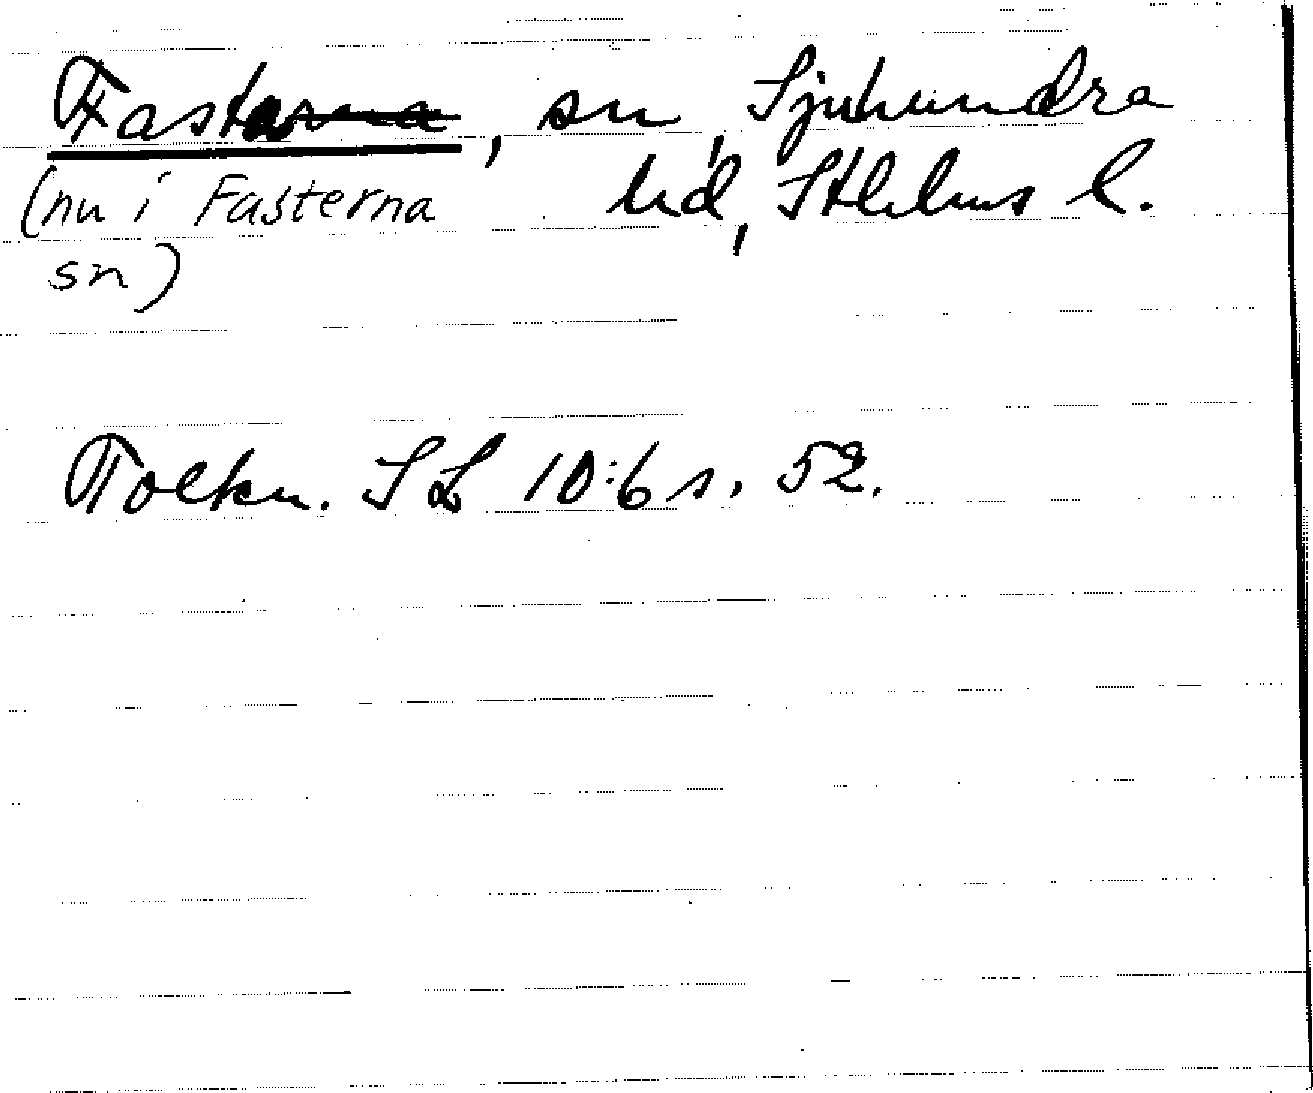 Fasta, sn, Sjuhundra
(nu i Fasterna hd, Sthlms l.
sn)
Tolkn. SL 10:6 s. 52.